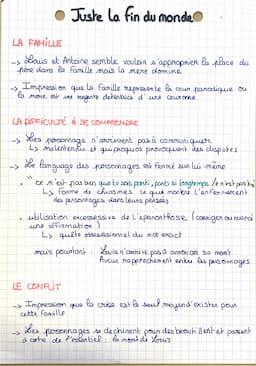 Juste la fin du monde
LA FAMILLE
-> Louis et Antoine semble vouloir s'approprier la place du
père dans la famille mais la mère domine
-> Impression que la famille représente la cour parodique où
la mère est une régente détentrice d'une couronne
LA DIFFICULTÉ À SE COMPRENDRE
-> Les personnage n'arrivent pas à communiquer
↳ malentendu et quiproquos provoquent des disputes
-> Le language des personnages est fermé sur lui-même
• "ce n'est pas bien que tu sois parti, parti si longtemps
↳ Forme de chiasme : ce qui montre l'enfermement
des personnages dans leurs pensées
• utilisation excessive de l'épanorthose (corriger ou nuancé
une affirmation)
↳ quête obsessionnel du mot exact
mais pourtant : Louis n'arrive pas à annoncer sa mort
Aucun rapprochement entre les personnages
LE CONFLIT
-> Impression que la crise est le seul moyen d'exister pour
cette famille
-> Les personnages se déchirent pour des et passent
à côté de l'essentiel : la mort de Louis